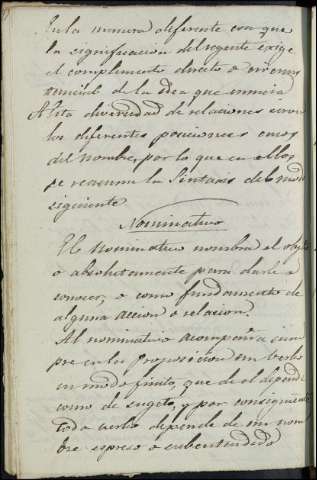 En la manera diferente con que
la significacion del regente exige
el complemento directo o circuns
tancial de la idea que enuncia
A esta diversidad de relaciones
los diferentes posiciones o casos
del nombre, por lo que en ellos
se resume la Sintaxis del modo
siguiente
Nominativo
El nominativo nombra el objeto
o absolutamente para darle a
conocer, o como fundamento de
alguna accion o relacion.
Al nominativo acompaña siem
pre en la proposicion un verbo
en modo finito, que de el depende
como de sugeto, y por consiguiente
todo verbo depende de un nom
bre espreso o subentendido